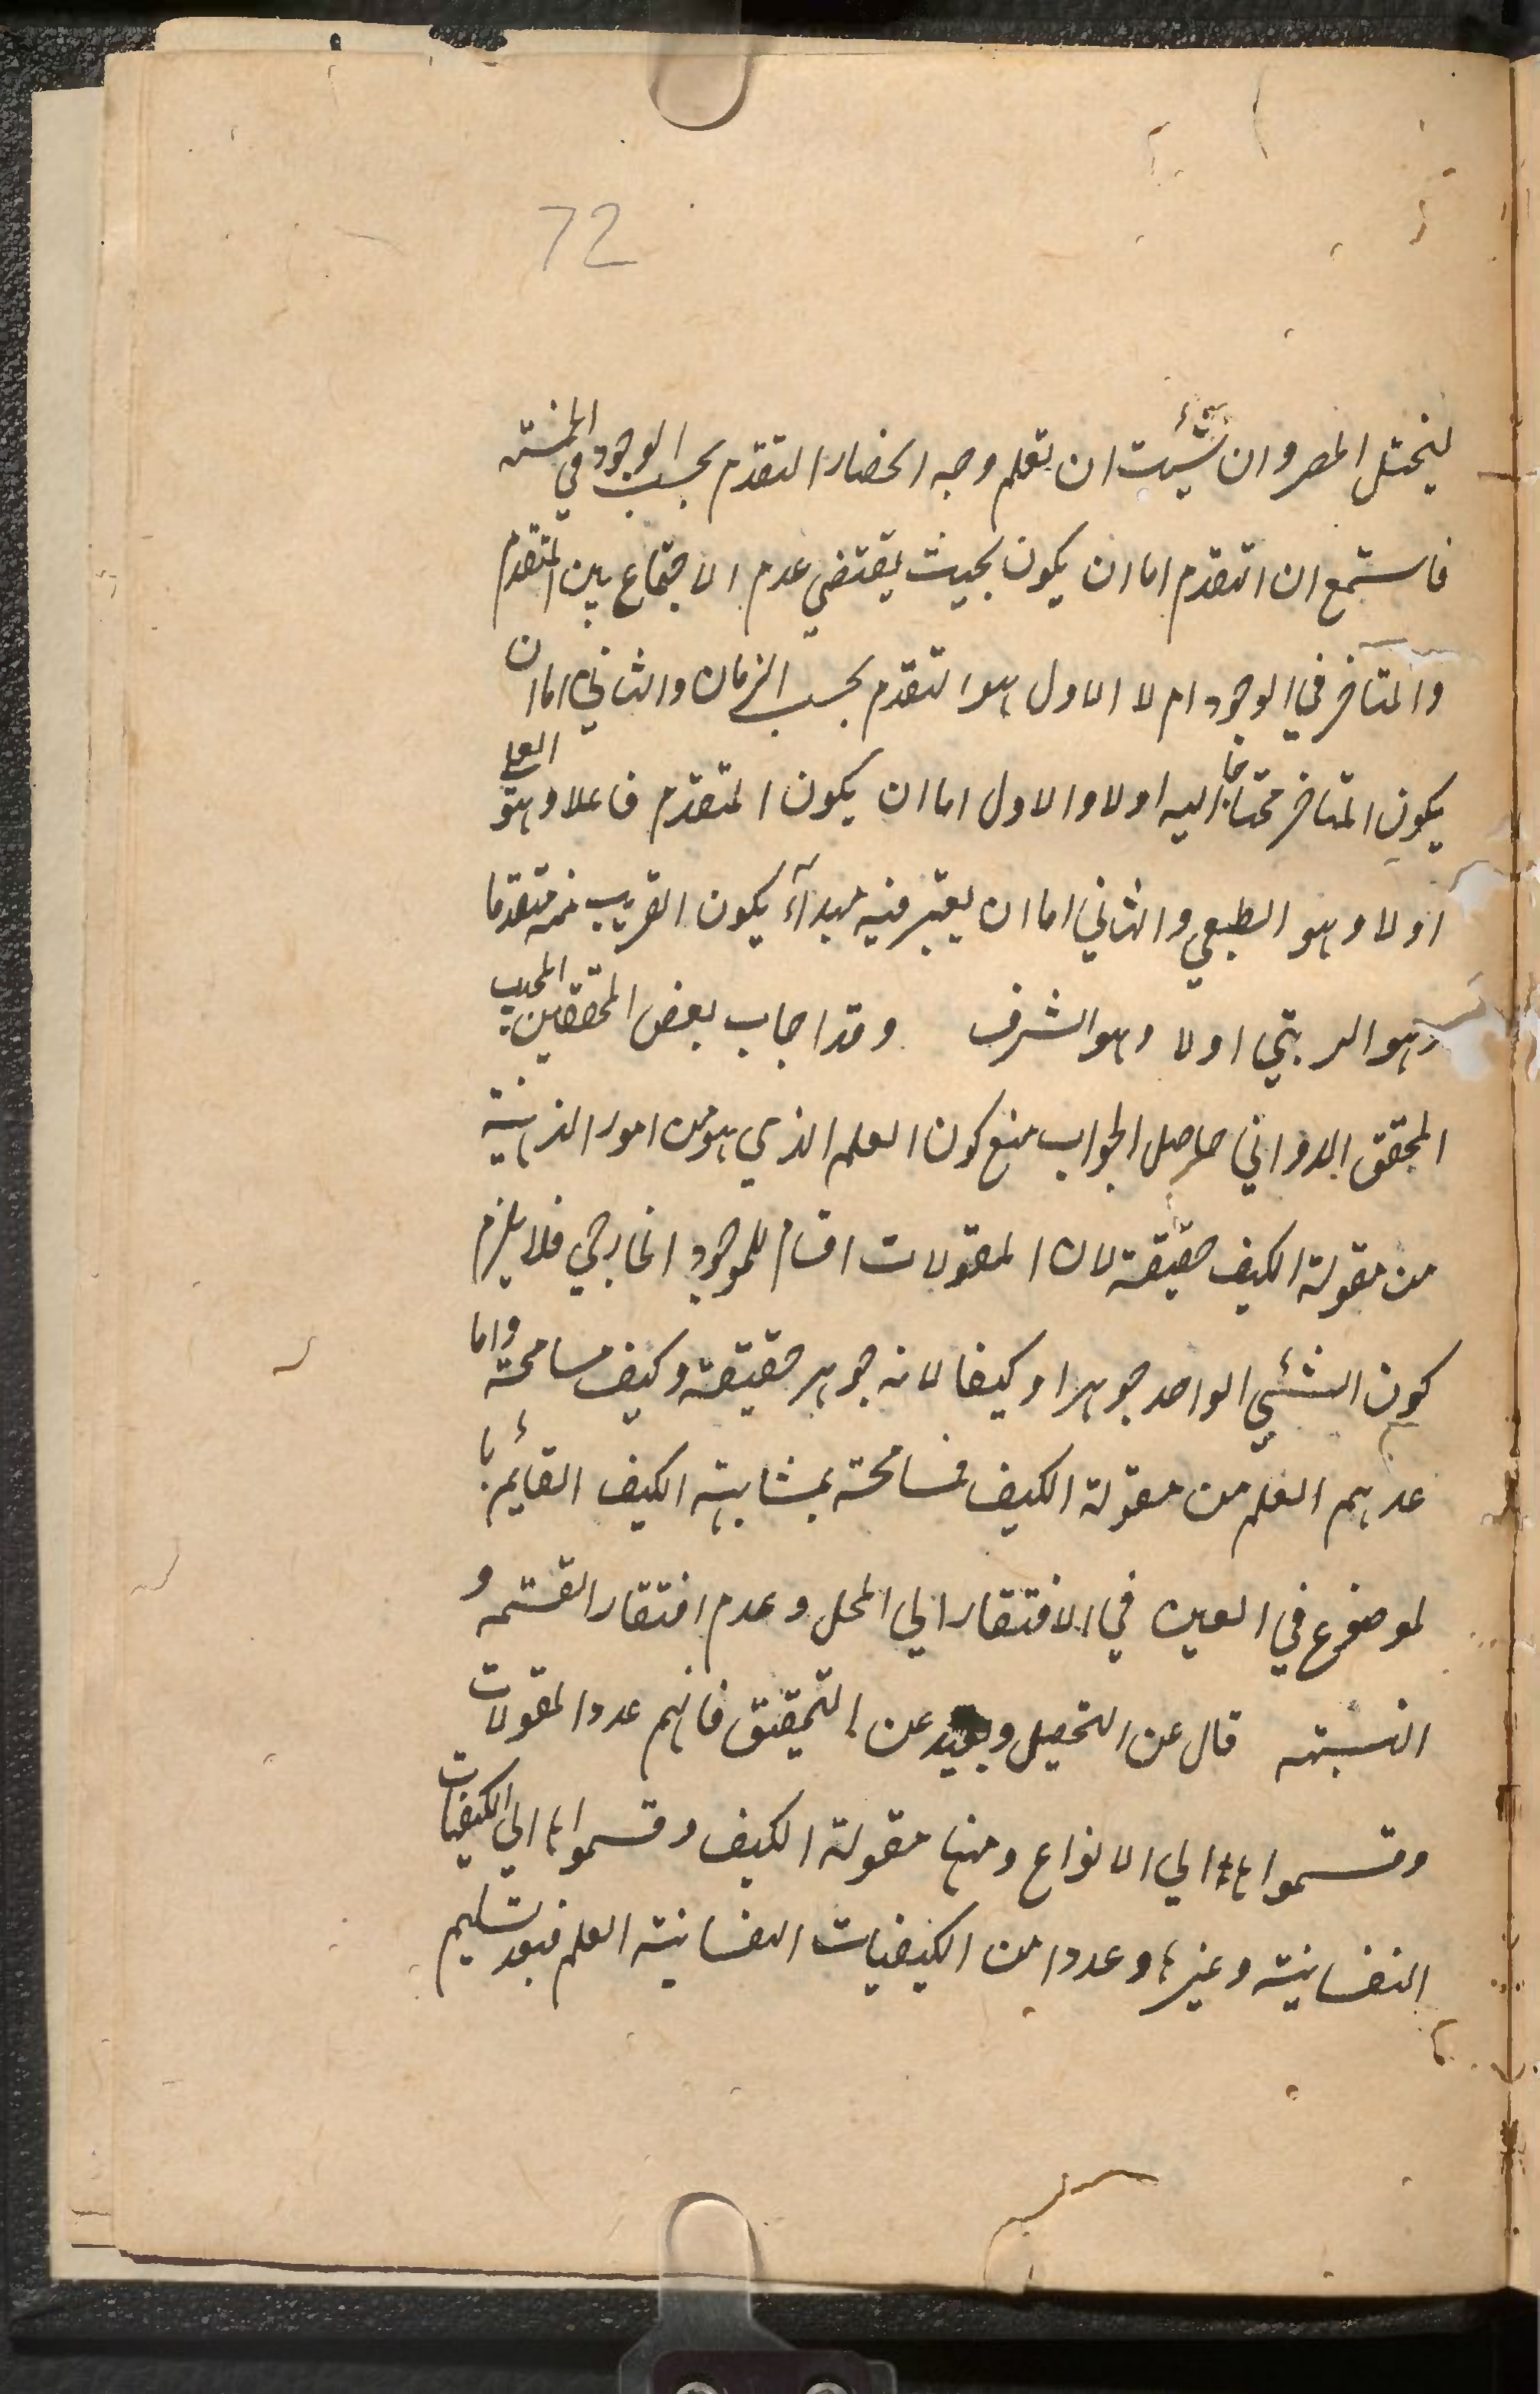 72
ليختل الحصر وان شئت ان تعلم وجه انحصار التقدم بحسب الوجود في الخمسته
فاستمع ان التقدم اما ان يكون بحيث يقتضي عدم الاجتماع بين المتقدم
والمتاخر في الوجود ام لا الاول هو التقدم بحسب الزمان والثاني اما ان
يكون المتاخر محتاجا اليه اولا والاول اما ان يكون المتقدم فاعلا وهو العلي
اولا وهو الطبعي والثاني اما ان يعتبر فيه مبدآء يكون القريب منه متقدما
وهو الرتبي اولا وهو الشرف وقد اجاب بعض المحققين المجيب
المحقق الدواني حاصل الجواب منع كون العلم الذي هو من امور الذهنية
من مقولة الكيف حقيقة لان المقولات اقسام للموجود الخارجي فلا يلزم
كون الشئي الواحد جوهرا وكيفا لانه جوهر حقيقة وكيف مسامحة واما
عدهم العلم من مقولة الكيف فمسامحة بمشابهته الكيف القائم با
لموضوع في العين في الافتقار الي المحل وعدم افتقار القسمه و
النسبته قال عن التحصيل وبعيد عن التحقيق فانهم عددا المقولات
وقسموا ها الي الانواع ومنها مقولة الكيف وقسموا ها الي الكيفيات
النفسانية وغيرها وعددا من الكيفيات النفسانية العلم فبعد تسليم